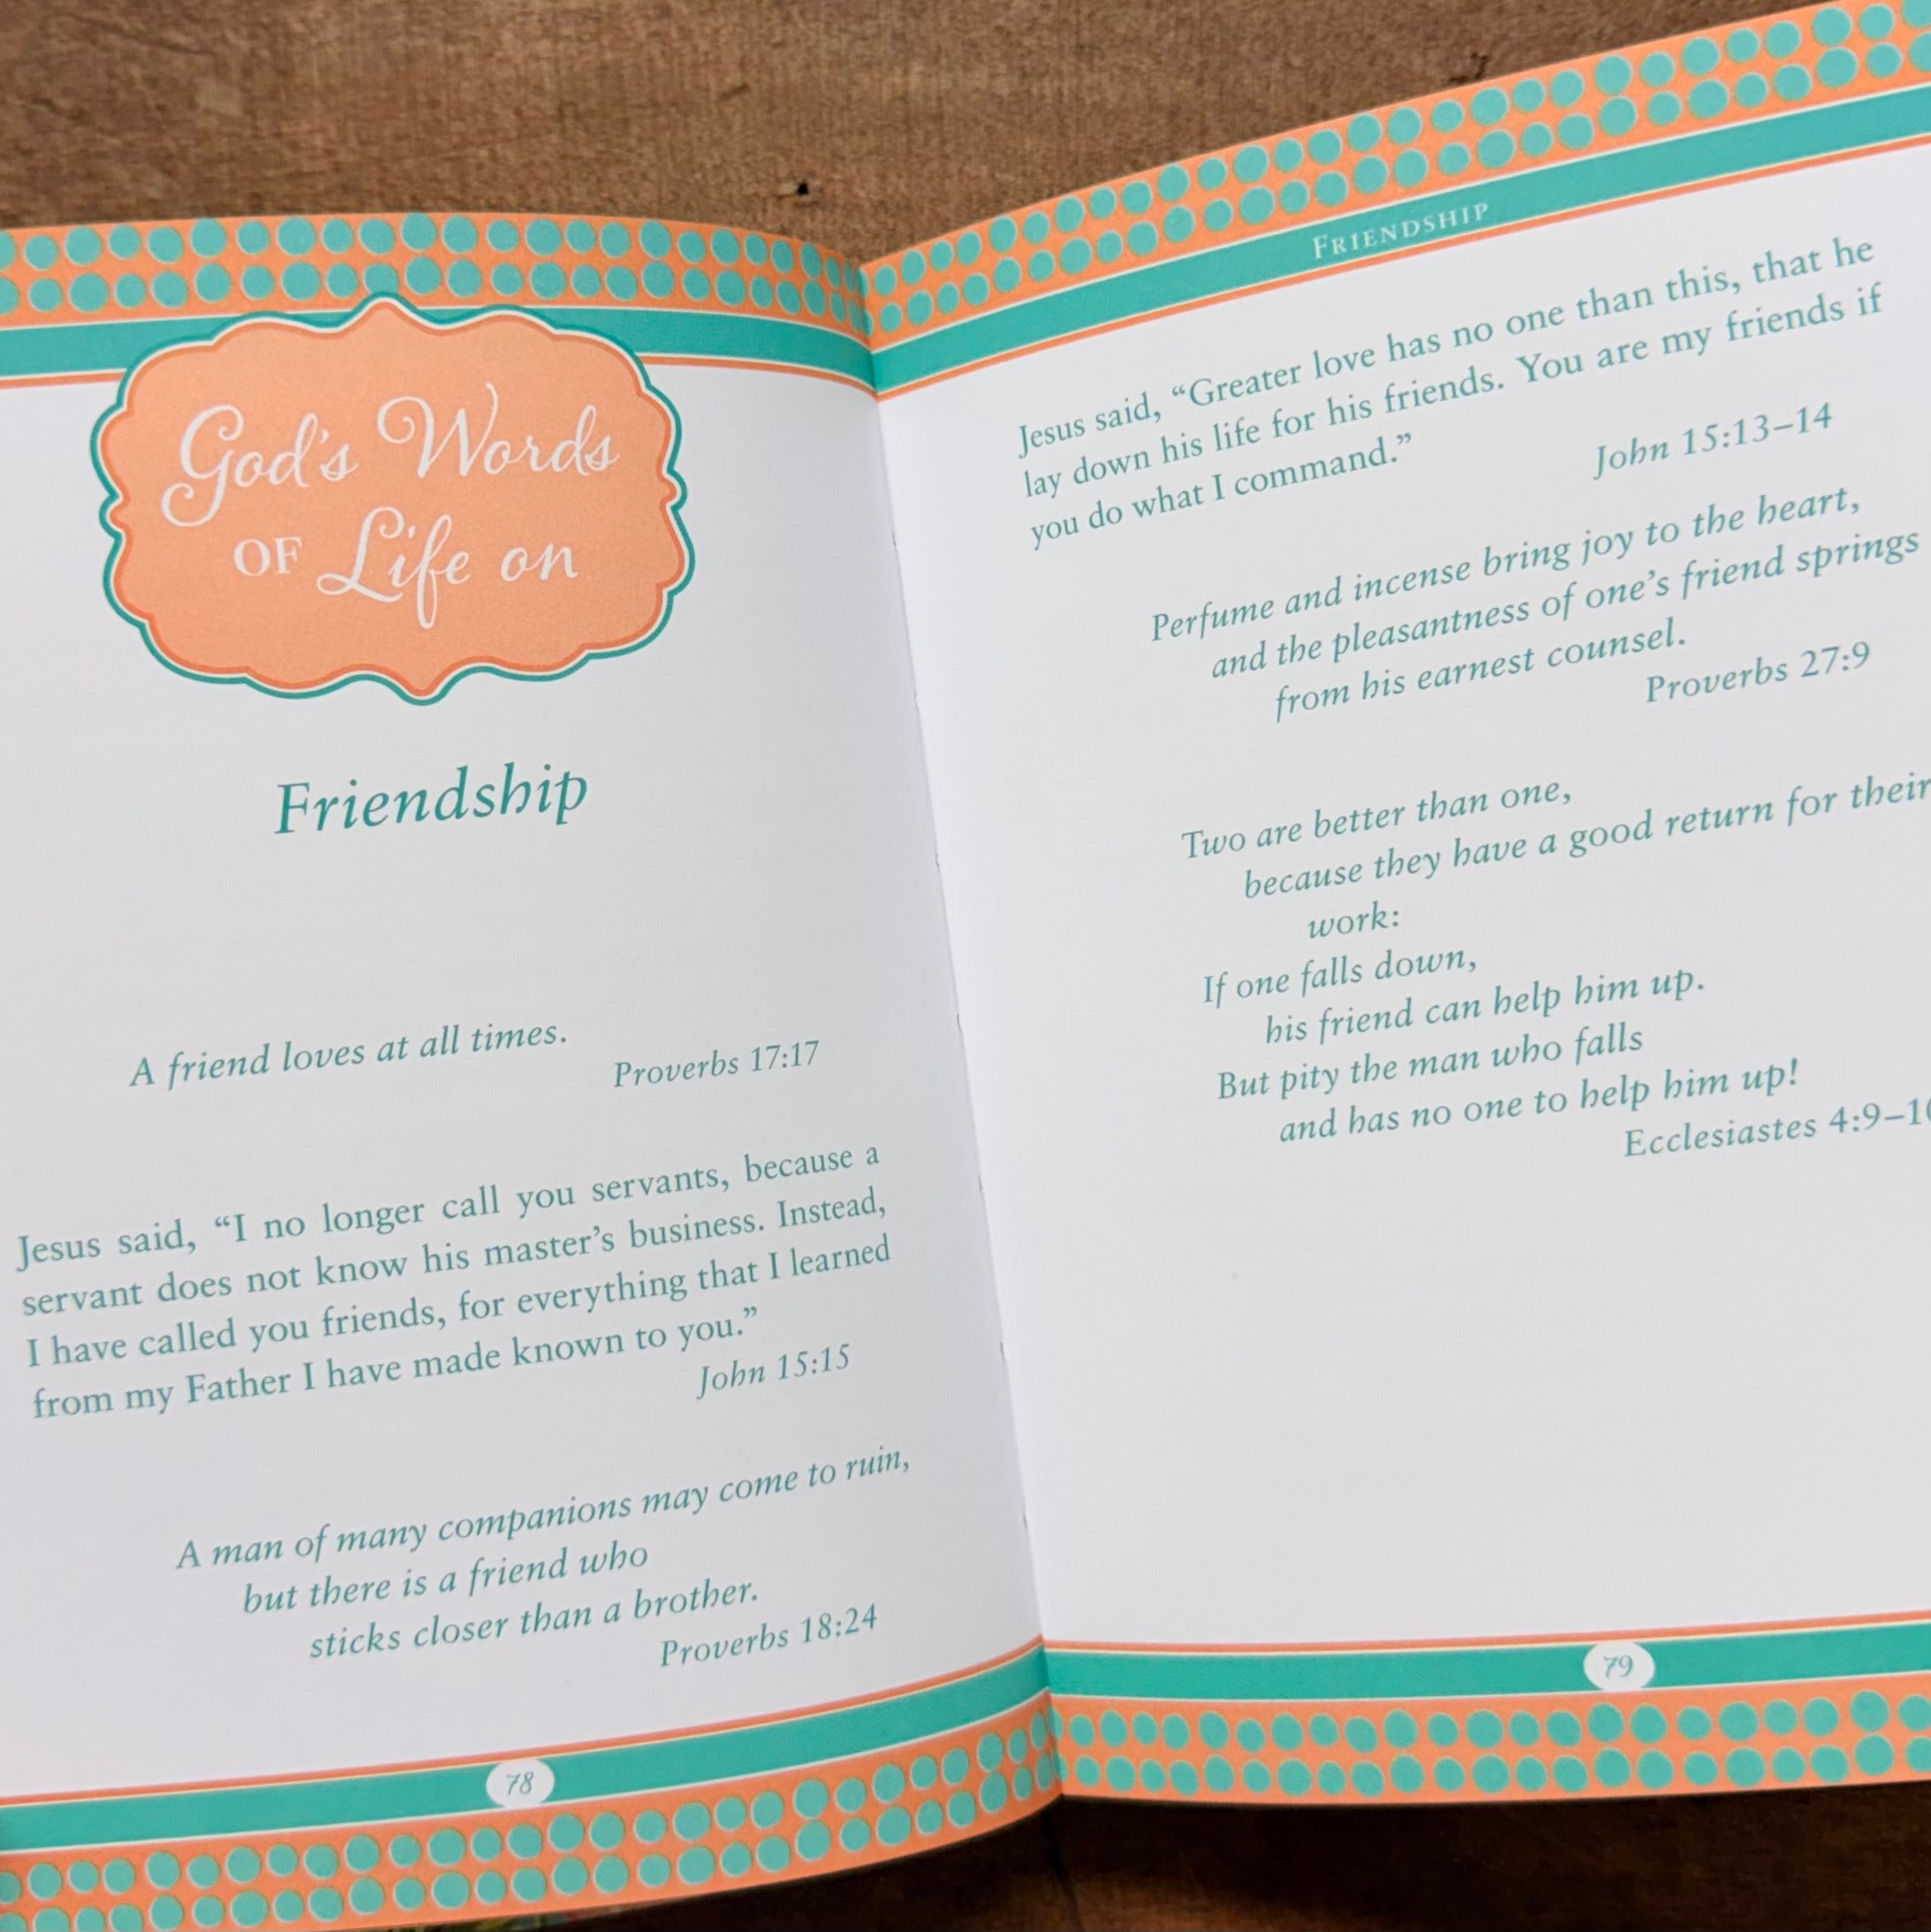 God's Words
OF Life on
Friendship
A friend loves at all times.
Proverbs 17:17
Jesus said, “I no longer call you servants, because a
servant does not know his master’s business. Instead,
I have called you friends, for everything that I learned
from my Father I have made known to you.”
John 15:15
A man of many companions may come to ruin,
but there is a friend who
sticks closer than a brother.
Proverbs 18:24
78
FRIENDSHIP
Jesus said, “Greater love has no one than this, that he
lay down his life for his friends. You are my friends if
you do what I command.”
John 15:13–14
Perfume and incense bring joy to the heart,
and the pleasantness of one’s friend springs
from his earnest counsel.
Proverbs 27:9
Two are better than one,
because they have a good return for their
work:
If one falls down,
his friend can help him up.
But pity the man who falls
and has no one to help him up!
Ecclesiastes 4:9–10
79